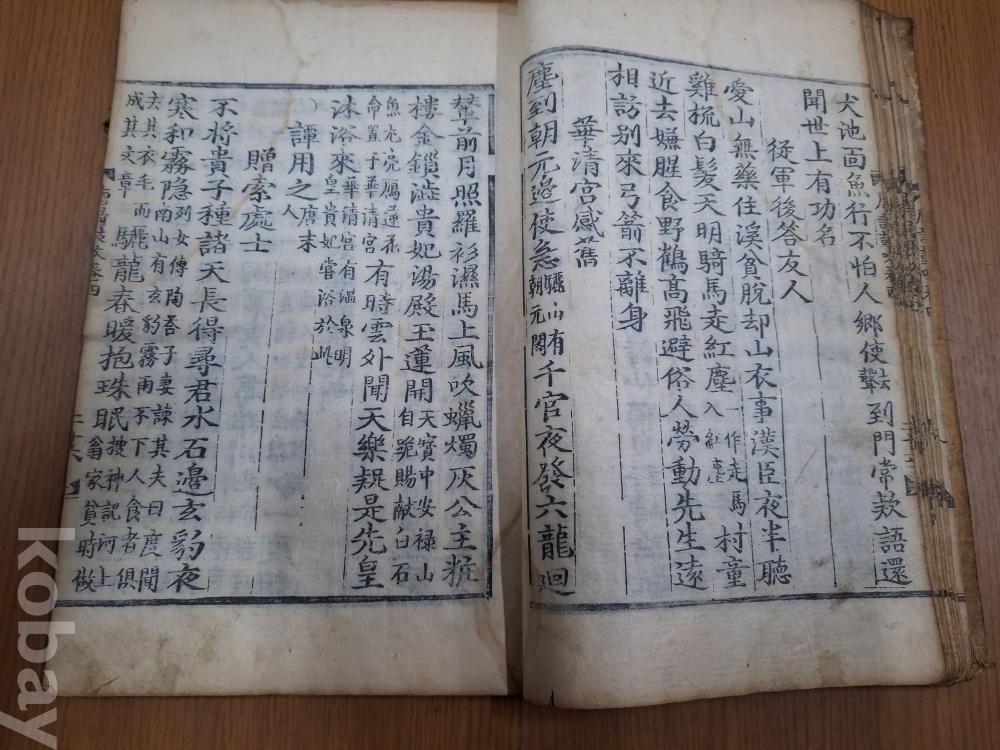 犬池面魚行不怕人鄉使到門常款語還
聞世上有功名
從軍後答友人
愛山無藥住溪貧脫却山衣事漢臣夜半聽
雞梳白髮天明騎馬走紅塵一作走馬入紅塵村童
近去嫌腥食野鶴高飛避俗人勞動先生遠
相訪別來弓箭不離身
華清宮感舊
塵到朝元邊使急驪山有朝元閣千官夜發六龍廻
輦前月照羅衫濕馬上風吹蠟燭灰公主粧
樓金鎖澁貴妃湯殿玉蓮開天寶中安祿山自範賜献白石
魚龙鳧鴈蓮花命置于華清宮有時雲外聞天樂疑是先皇
沐浴來華清宮有温泉明皇貴妃嘗浴於此
譚用之唐末人
贈索處士
不將貴子種諸天長得尋君水石邊玄豹夜
寒和霧隐列女傳陶荅子妻諫其夫曰度聞南山有玄豹霧雨不下人食者俱
去其衣毛而成其文章驪龍春暖抱珠眠搜神記河上翁家貧時徴
kobay